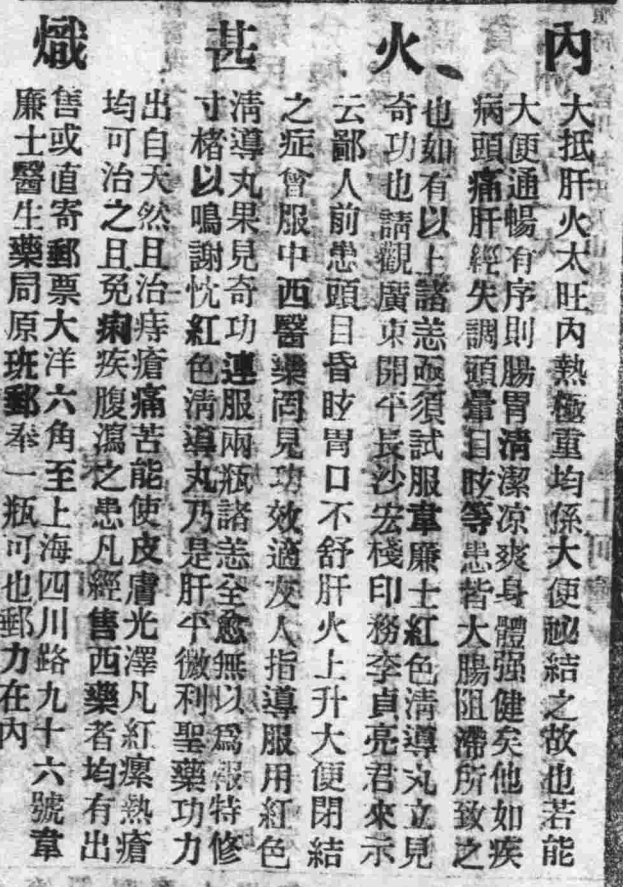 內火甚熾
大抵肝火太旺內熱極重均係大便祕結之故也若能
大便通暢有序則腸胃清潔凉爽身體强健矣他如疾
病頭痛肝經失調頭暈目眩等患皆大腸阻滯所致之
也如有以上諸恙亟須試服韋廉士紅色清導丸立見
奇功也請觀廣東開平長沙宏棧印務李貞亮君來示
云鄙人前患頭目昏眩胃口不舒肝火上升大便閉結
之症曾服中西醫藥罔見功效適友人指導服用紅色
清導丸果見奇功連服兩瓶諸恙全愈無以爲報特修
寸楮以鳴謝忱紅色清導丸乃是肝平微利聖藥功力
出自天然且治痔瘡痛苦能使皮膚光澤凡紅瘰熱瘡
均可治之且免痢疾腹瀉之患凡經售西藥者均有出
售或直寄郵票大洋六角至上海四川路九十六號韋
廉士醫生藥局原班郵奉一瓶可也郵力在內